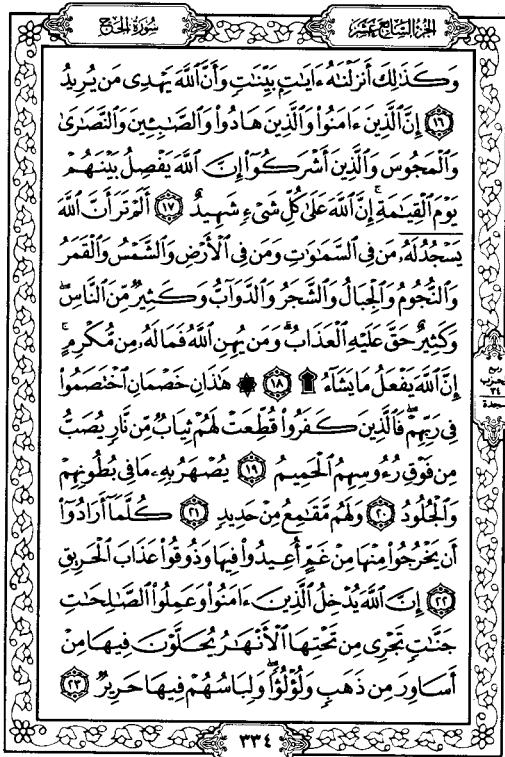 سُورَةُ الحَجِّ
الجُزْءُ السَّابِعَ عَشَرَ
وَكَذَٰلِكَ أَنزَلْنَٰهُ ءَايَٰتٍۭ بَيِّنَٰتٍ وَأَنَّ ٱللَّهَ يَهْدِى مَن يُرِيدُ
١٦ إِنَّ ٱلَّذِينَ ءَامَنُوا۟ وَٱلَّذِينَ هَادُوا۟ وَٱلصَّٰبِـِٔينَ وَٱلنَّصَٰرَىٰ
وَٱلْمَجُوسَ وَٱلَّذِينَ أَشْرَكُوٓا۟ إِنَّ ٱللَّهَ يَفْصِلُ بَيْنَهُمْ
يَوْمَ ٱلْقِيَٰمَةِ ۚ إِنَّ ٱللَّهَ عَلَىٰ كُلِّ شَىْءٍ شَهِيدٌ ١٧ أَلَمْ تَرَ أَنَّ ٱللَّهَ
يَسْجُدُ لَهُۥ مَن فِى ٱلسَّمَٰوَٰتِ وَمَن فِى ٱلْأَرْضِ وَٱلشَّمْسُ وَٱلْقَمَرُ
وَٱلنُّجُومُ وَٱلْجِبَالُ وَٱلشَّجَرُ وَٱلدَّوَآبُّ وَكَثِيرٌ مِّنَ ٱلنَّاسِ ۖ
وَكَثِيرٌ حَقَّ عَلَيْهِ ٱلْعَذَابُ ۗ وَمَن يُهِنِ ٱللَّهُ فَمَا لَهُۥ مِن مُّكْرِمٍ ۚ
إِنَّ ٱللَّهَ يَفْعَلُ مَا يَشَآءُ ۩ ١٨ ۞ هَٰذَانِ خَصْمَانِ ٱخْتَصَمُوا۟
فِى رَبِّهِمْ ۖ فَٱلَّذِينَ كَفَرُوا۟ قُطِّعَتْ لَهُمْ ثِيَابٌ مِّن نَّارٍ يُصَبُّ
مِن فَوْقِ رُءُوسِهِمُ ٱلْحَمِيمُ ١٩ يُصْهَرُ بِهِۦ مَا فِى بُطُونِهِمْ
وَٱلْجُلُودُ ٢٠ وَلَهُم مَّقَٰمِعُ مِنْ حَدِيدٍ ٢١ كُلَّمَآ أَرَادُوٓا۟
أَن يَخْرُجُوا۟ مِنْهَا مِنْ غَمٍّ أُعِيدُوا۟ فِيهَا وَذُوقُوا۟ عَذَابَ ٱلْحَرِيقِ
٢٢ إِنَّ ٱللَّهَ يُدْخِلُ ٱلَّذِينَ ءَامَنُوا۟ وَعَمِلُوا۟ ٱلصَّٰلِحَٰتِ
جَنَّٰتٍ تَجْرِى مِن تَحْتِهَا ٱلْأَنْهَٰرُ يُحَلَّوْنَ فِيهَا مِنْ
أَسَاوِرَ مِن ذَهَبٍ وَلُؤْلُؤًا ۖ وَلِبَاسُهُمْ فِيهَا حَرِيرٌ ٢٣
ربع
٣٤
سجدة
٣٣٤